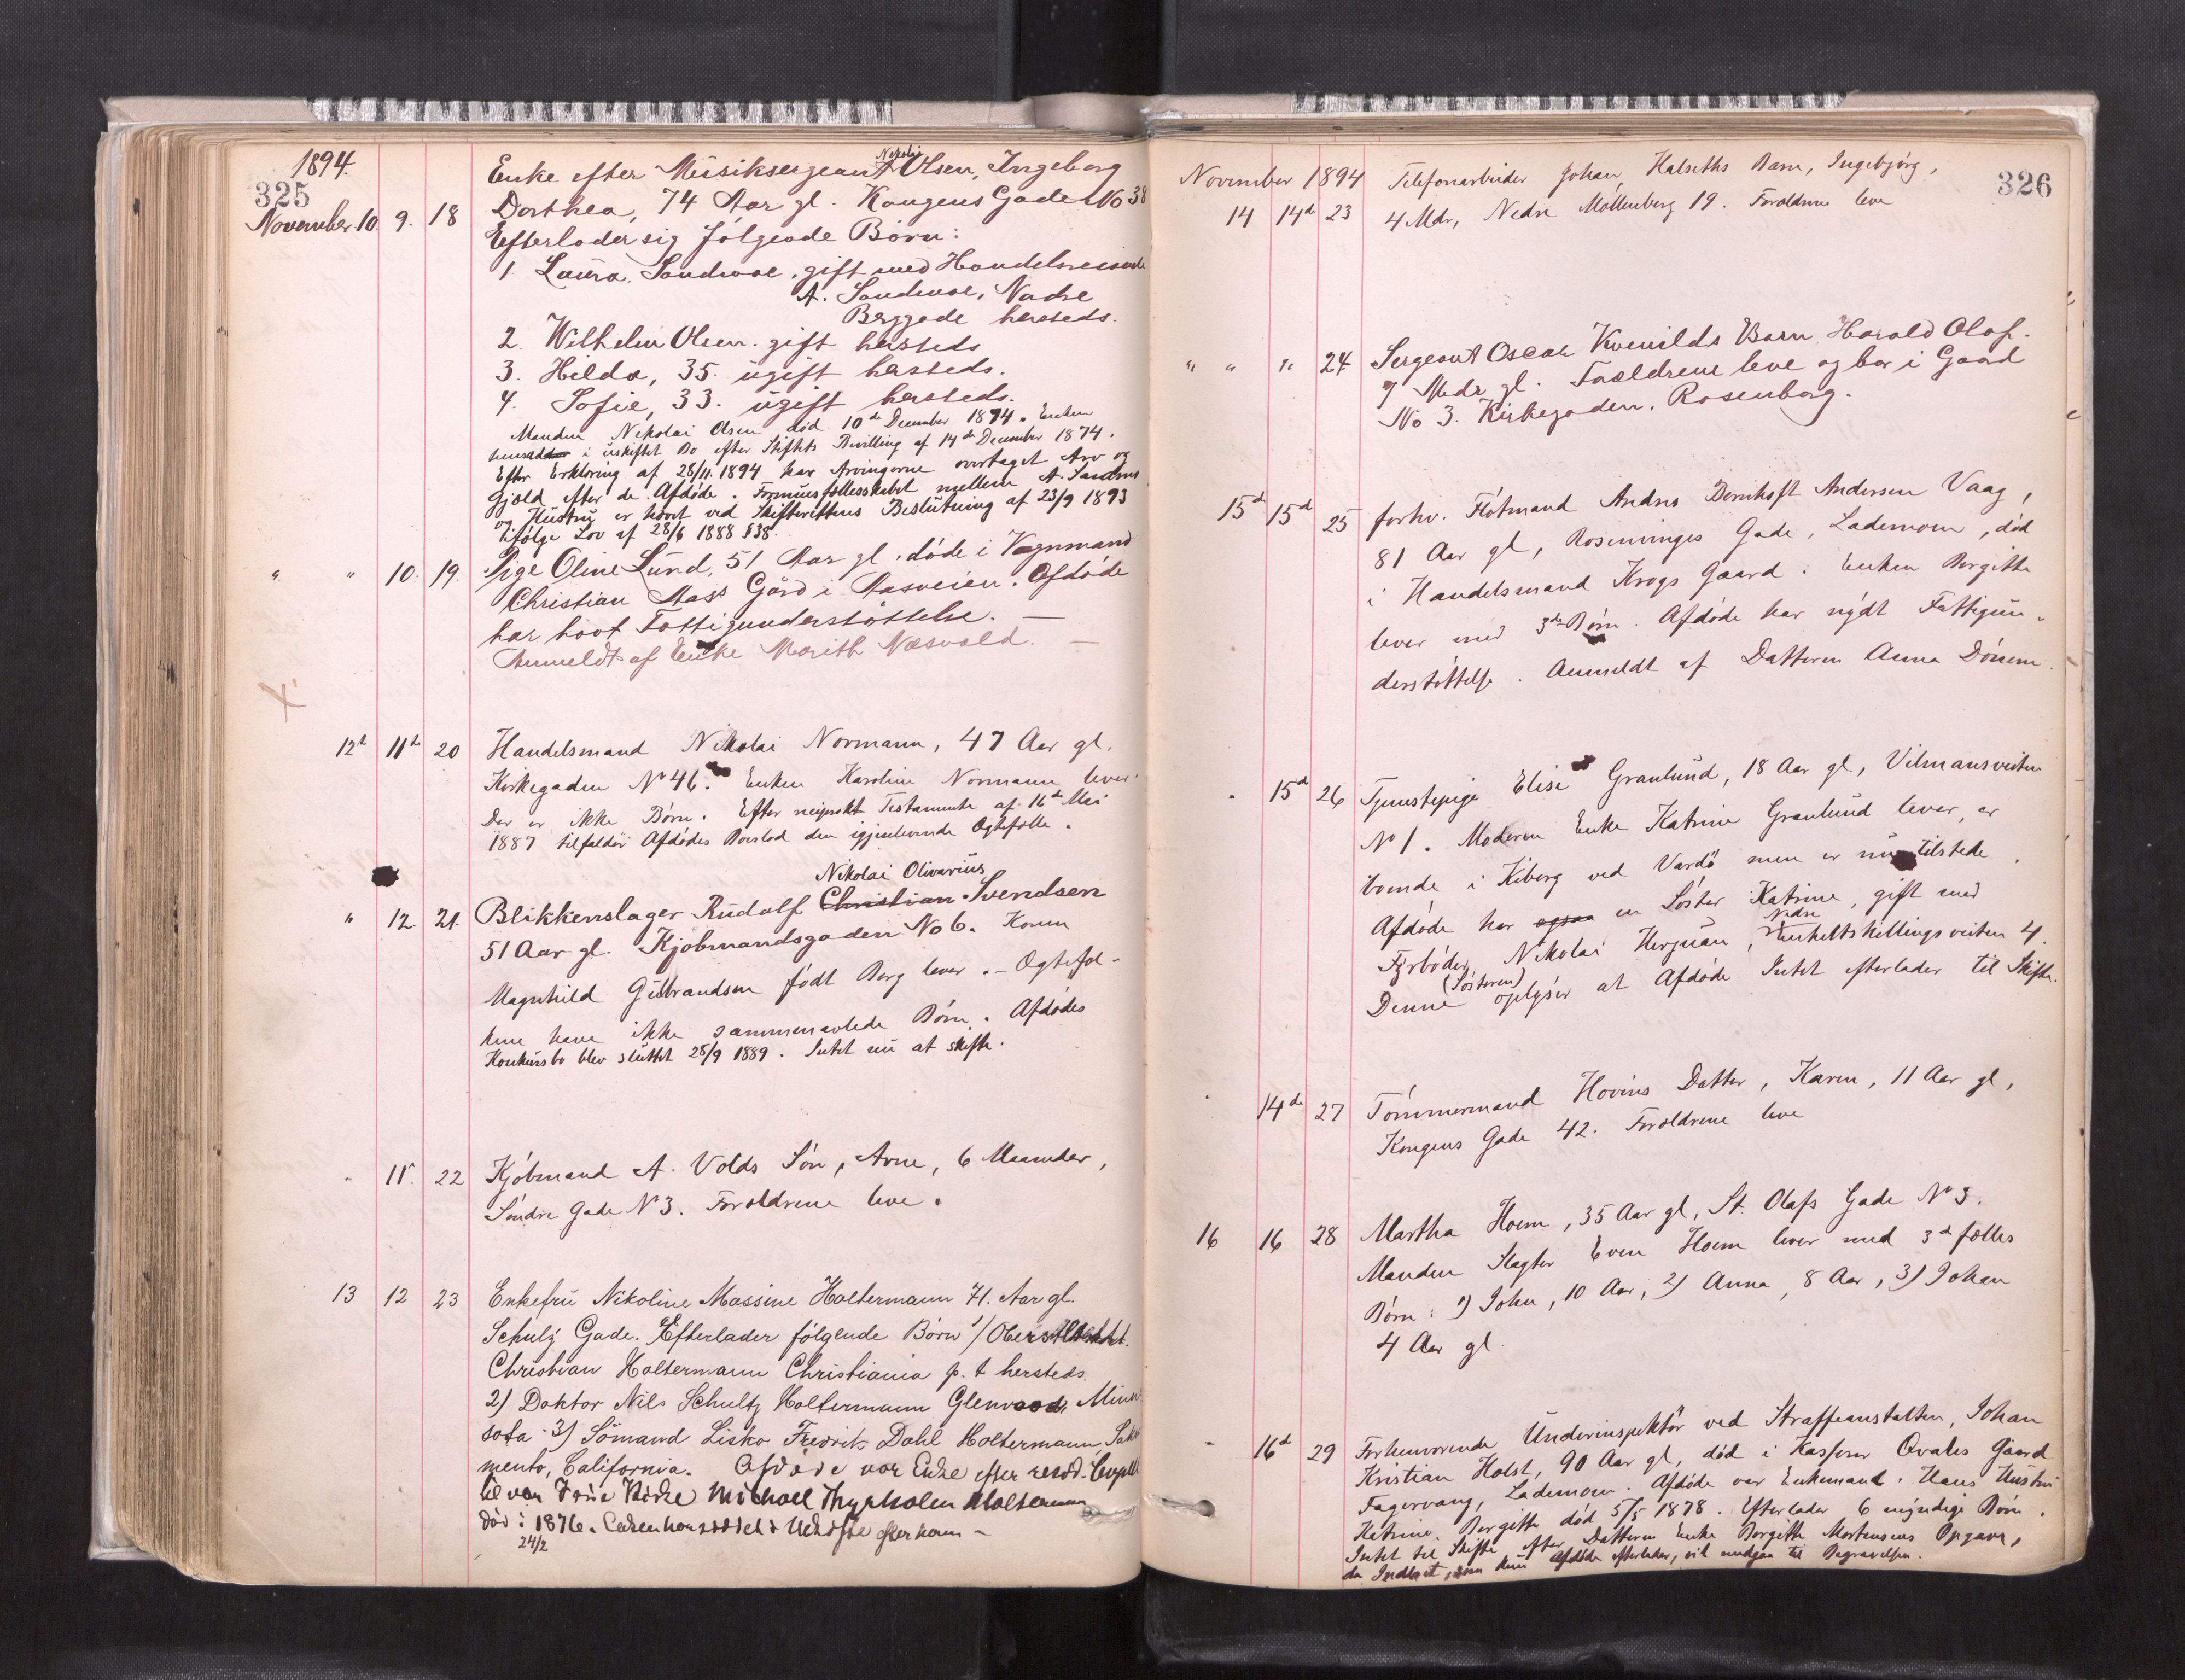 1894.
325
November 10. 9. 18 Enke efter Musiksergeant Nikolai Olsen, Ingeborg
Dorthea, 74 Aar gl. Kongens Gade No 38
Efterlader sig følgende Børn:
1. Laura Sandmoe, gift med Handelsreisende
A. Sandmoe, Nedre
Baggade hersteds.
2. Wilhelm Olsen. gift hersteds
3. Hilda, 35. ugift hersteds.
4. Sofie, 33. ugift hersteds.
Manden Nikolai Olsen død 10de December 1874. Enken
hensad i uskiftet Bo efter Stiftets Bevilling af 14de December 1874.
Efter Erklæring af 28/11. 1894 har Arvingerne overtaget Arv og
Gjæld efter de Afdøde. Formuesfællesskabet mellem A. Sandmoe
og Hustru er hævet ved Skifterettens Beslutning af 23/9 1893
ifølge Lov af 28/6 1888 § 38.
" " 10. 19. Pige Oline Lund, 51 Aar gl. døde i Vognmand
Christian Aas's Gård i Aasveien. Afdøde
har havt Fattigunderstøttelse. —
Anmeldt af Enke Marith Næsvold. —
X
12te 11te 20 Handelsmand Nikolai Normann, 47 Aar gl.
Kirkegaden No 46. Enken Karoline Normann lever.
Der er ikke Børn. Efter Testamente af 16de Mai
1887 tilfalder Afdødes Boeslod den igjenlevende Ægtefælle.
Nikolai Olivarius
" 12 21. Blikkenslager Rudolf Christian Svendsen
51 Aar gl. Kjøbmandsgaden No 6. Konen
Magnhild Gulbrandsen født Berg lever. - Ægtefæl-
lene have ikke sammenavlede Børn. Afdødes
Konkursbo blev sluttet 28/9 1889. Intet nu at skifte.
- 11. 22 Kjøbmand A. Volds Søn, Arne, 6 Maaneder,
Søndre Gade No 3. Forældrene leve.
13 12 23 Enkefru Nikoline Massine Holtermann 71. Aar gl.
Schultz Gade. Efterlader følgende Børn 1)
Christian Holtermann Christiania p. t hersteds.
2) Doktor Nils Schultz Holtermann Glenwood, Minne-
sota. 3) Sømand Lisko Fredrik Dahl Holtermann, Sakra-
mento, California. Afdøde var Enke efter resid. Capellan
til vor Frue Kirke Michael Thyrholm Holtermann
død i 1876. Enken har siddet i Uskifte efter ham —
24/2
November 1894 326
14 14de 23 Telefonarbeider Johan Halseths Barn, Ingebjørg,
4 Mdr, Nedre Møllenberg 19. Forældrene leve
" " " 24 Sergeant Oscar Kvenilds Barn Harald Olaf.
7 Mdr gl. Forældrene leve og bor i Gaard
No 3. Kirkegaden, Rosenborg.
15de 15de 25 forhv. Fløtmand Andres Bernhoft Andersen Vaag,
81 Aar gl, Rosenvinges Gade, Lademoen, død
i Handelsmand Krogs Gaard. Enken Bergitte
lever med 3de Børn. Afdøde har nydt Fattigun-
derstøttelse. Anmeldt af Datteren Anna Dønem.
" 15de 26 Tjenestepige Elise Granlund, 18 Aar gl, Vilmansveiten
No 1. Moderen Enke Katrine Granlund lever, er
boende i Kiberg ved Vardø men er nu tilstede.
Afdøde har ogsaa en Søster Katrine, gift med
Fyrbøder Nikolai, Nedre Enkeltskillingsveiten 4.
Denne (Søsteren) oplyser at Afdøde Intet efterlader til Skifte.
" 14de 27 Tømmermand Hovins Datter, Karen, 11 Aar gl,
Kongens Gade 42. Forældrene leve
16 16 28 Martha Hoem, 35 Aar gl, St. Olafs Gade No 3.
Manden Slagter Even Hoem lever med 3de fælles
Børn: 1) John, 10 Aar, 2) Anna, 8 Aar, 3) Johan
4 Aar gl.
- 16de 29 Forhenværende Underinspektør ved Straffeanstalten, Johan
Kristian Holst, 90 Aar gl, død i Kasserer Qvales Gaard
Fagervang, Lademoen. Afdøde var Enkemand. Hans Hustru
Katrine Bergitte død 5/5 1878. Efterlader 6 myndige Børn.
Intet til Skifte efter Datteren Enke Bergitte Mortensens Opgave,
da Indboet, som kun Afdøde efterlader, vil medgaa til Begravelsen.